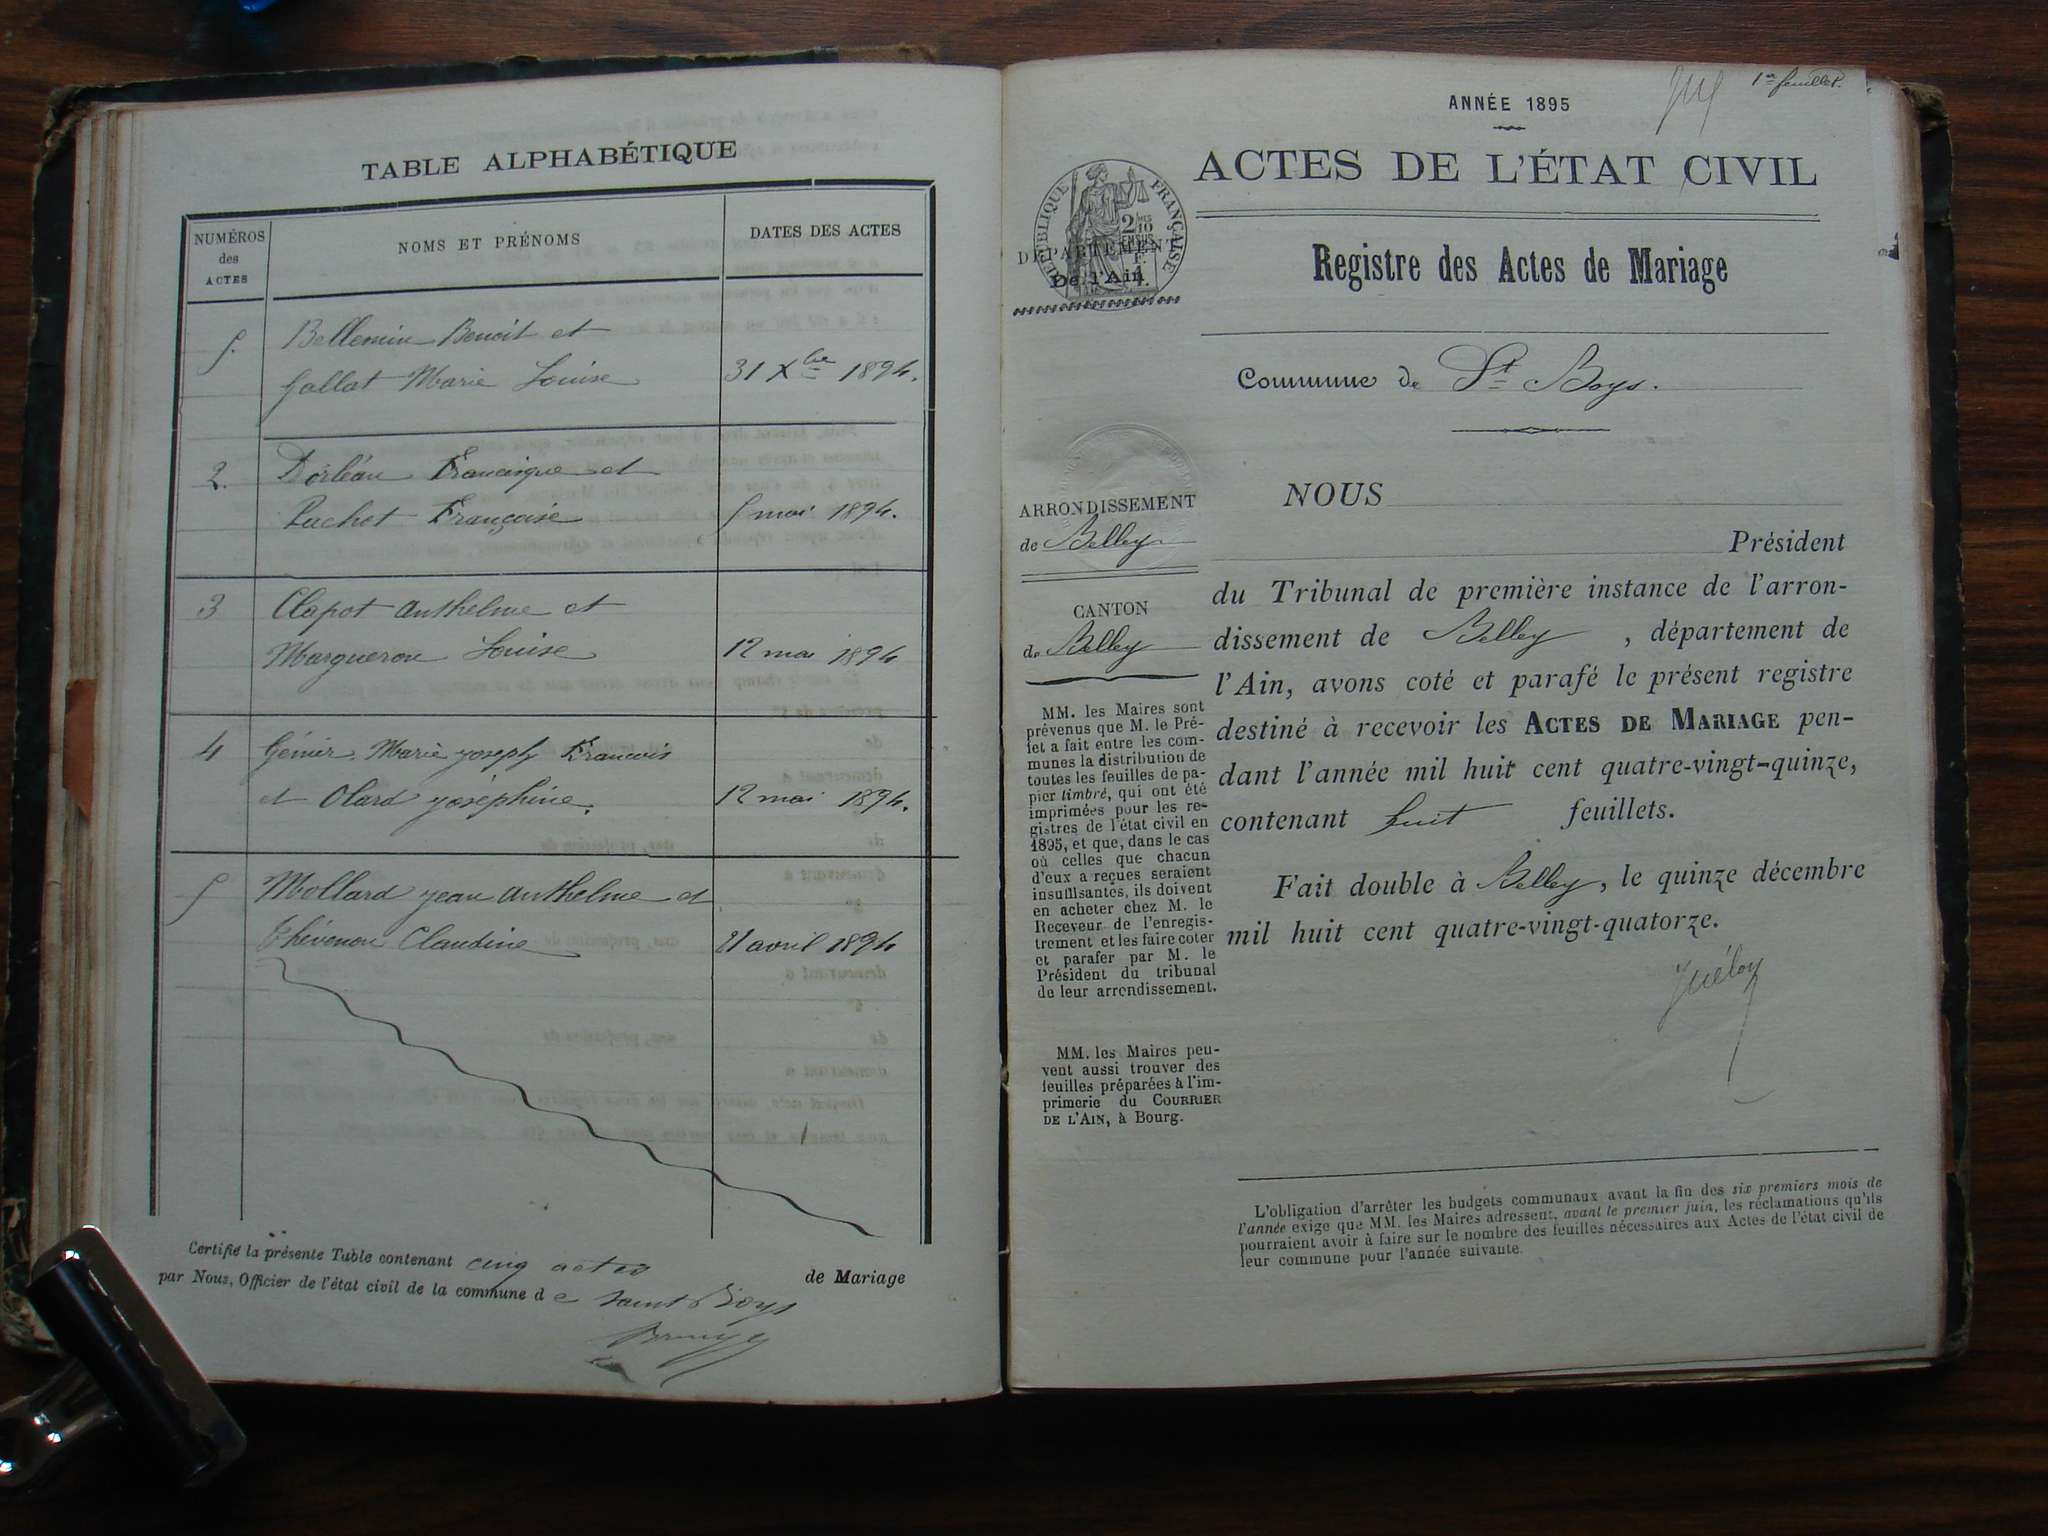 TABLE ALPHABÉTIQUE
NUMÉROS des ACTES
NOMS ET PRÉNOMS
DATES DES ACTES
Bellemin Benoit et
Gallat Marie Louise
31 Xbre 1894.
2.
Dorléau Francisque et
Pachot Françoise
5 mai 1894.
3
Clapot Anthelme et
Margueron Louise
12 mai 1894
4
Génier Marie Joseph Francois
et Olard Joséphine.
12 mai 1894.
5
Mollard Jean Anthelme et
Thévenon Claudine
21 avril 1894
Certifié la présente Table contenant cinq actes de Mariage
par Nous, Officier de l'état civil de la commune de Saint Boys
1er feuillet.
ANNÉE 1895
ACTES DE L'ÉTAT CIVIL
RÉPUBLIQUE FRANÇAISE
2/10
DÉPARTEMENT
De l'Ain
Registre des Actes de Mariage
Commune de St Boys.
ARRONDISSEMENT
de Belley
CANTON
de Belley
MM. les Maires sont
prévenus que M. le Pré-
fet a fait entre les com-
munes la distribution de
toutes les feuilles de pa-
pier timbré, qui ont été
imprimées pour les re-
gistres de l'état civil en
1895, et que, dans le cas
où celles que chacun
d'eux a reçues seraient
insuffisantes, ils doivent
en acheter chez M. le
Receveur de l'enregis-
trement et les faire coter
et parafer par M. le
Président du tribunal
de leur arrondissement.
MM. les Maires peu-
vent aussi trouver des
feuilles préparées à l'im-
primerie du COURRIER
DE L'AIN, à Bourg.
NOUS
Président
du Tribunal de première instance de l'arron-
dissement de Belley, département de
l'Ain, avons coté et parafé le présent registre
destiné à recevoir les ACTES DE MARIAGE pen-
dant l'année mil huit cent quatre-vingt-quinze,
contenant huit feuillets.
Fait double à Belley, le quinze décembre
mil huit cent quatre-vingt-quatorze.
L'obligation d'arrêter les budgets communaux avant la fin des six premiers mois de
l'année exige que MM. les Maires adressent, avant le premier juin, les réclamations qu'ils
pourraient avoir à faire sur le nombre des feuilles nécessaires aux Actes de l'état civil de
leur commune pour l'année suivante.